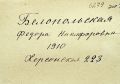 Белопольская
Федора Никифоровна
1910
Херсонская 223